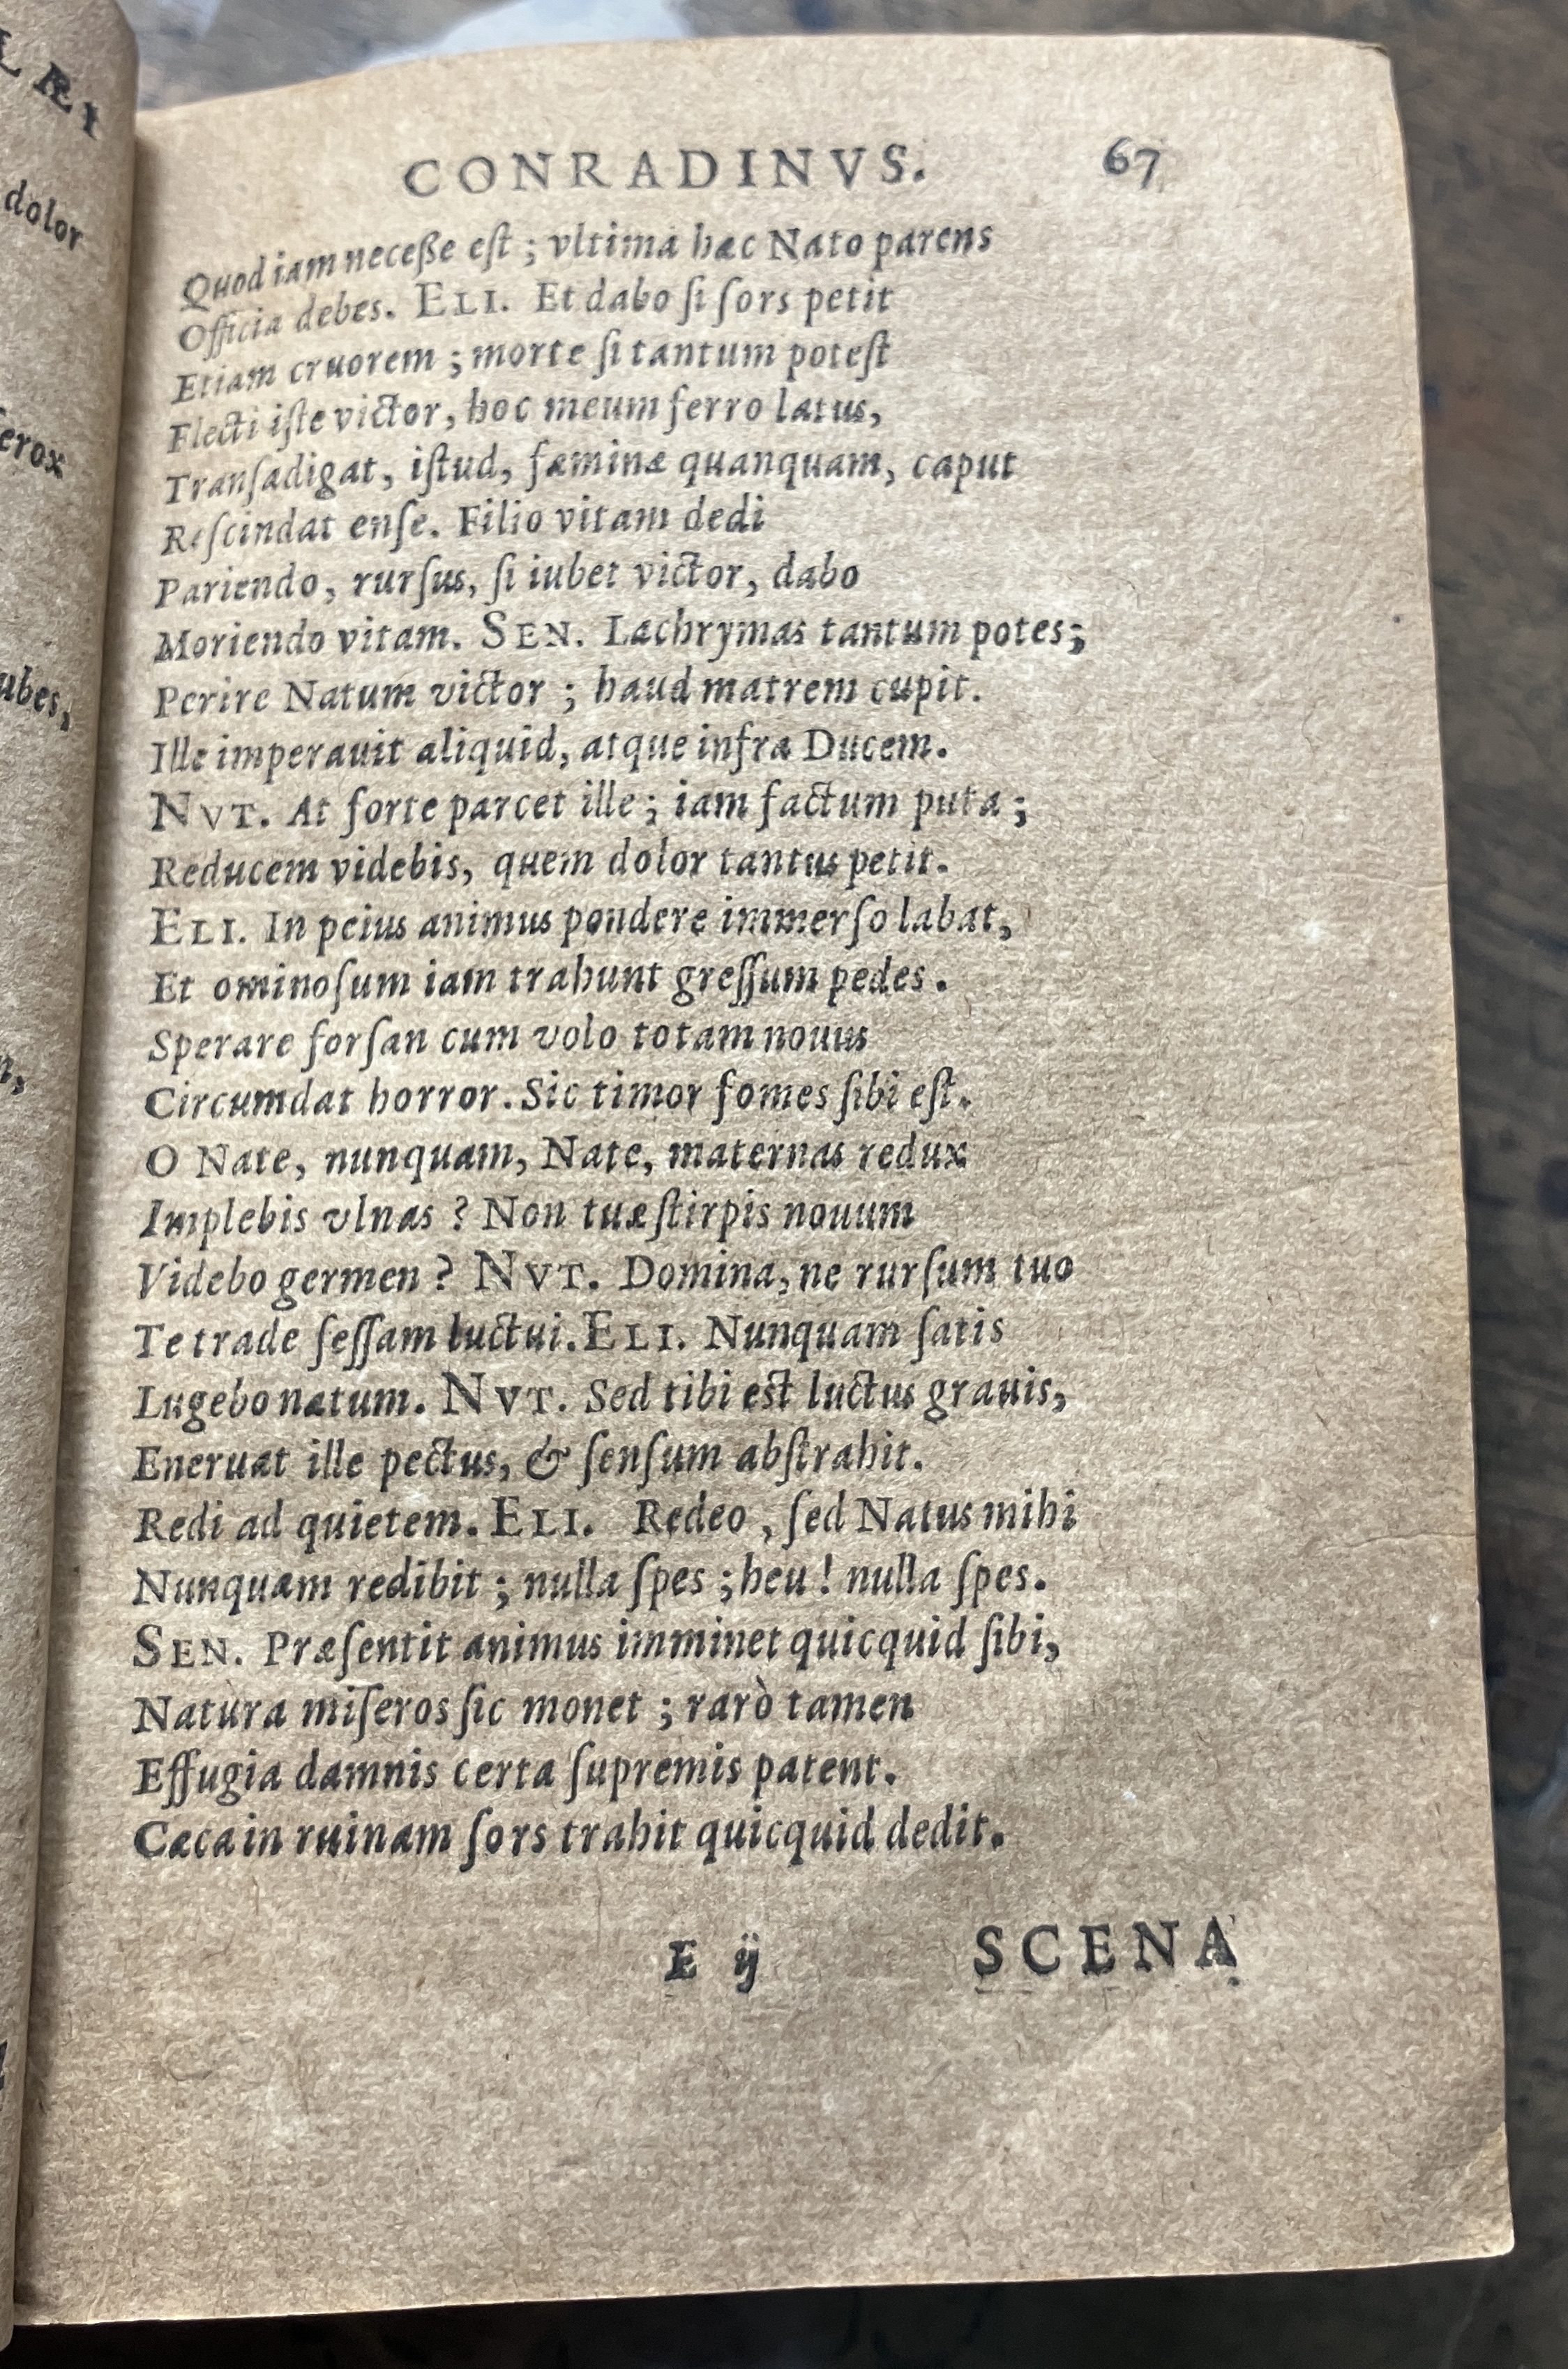 L ÆI
dolor
erox
ubes,
CONRADINVS. 67
Quod iam neceße eſt ; vltima hæc Nato parens
Officia debes. ELI. Et dabo ſi ſors petit
Etiam cruorem ; morte ſi tantum poteſt
Flecti iſte victor, hoc meum ferro latus,
Tranſadigat, iſtud, fæminæ quanquam, caput
Reſcindat enſe. Filio vitam dedi
Pariendo, rurſus, ſi iubet victor, dabo
Moriendo vitam. SEN. Lachrymas tantum potes;
Perire Natum victor ; haud matrem cupit.
Ille imperauit aliquid, atque infra Ducem.
NVT. At forte parcet ille ; iam factum puta ;
Reducem videbis, quem dolor tantus petit.
ELI. In peius animus pondere immerſo labat,
Et ominoſum iam trahunt greſſum pedes.
Sperare forſan cum volo totam nouus
Circumdat horror. Sic timor fomes ſibi eſt.
O Nate, nunquam, Nate, maternas redux
Implebis vlnas ? Non tuæ ſtirpis nouum
Videbo germen ? NVT. Domina, ne rurſum tuo
Te trade feſſam luctui. ELI. Nunquam ſatis
Lugebo natum. NVT. Sed tibi est luctus grauis,
Eneruat ille pectus, & ſenſum abſtrahit.
Redi ad quietem. ELI. Redeo , ſed Natus mihi
Nunquam redibit ; nulla ſpes ; heu ! nulla ſpes.
SEN. Præſentit animus imminet quicquid ſibi,
Natura miſeros ſic monet ; rarò tamen
Effugia damnis certa ſupremis patent.
Cæca in ruinam ſors trahit quicquid dedit.
E ij SCENA